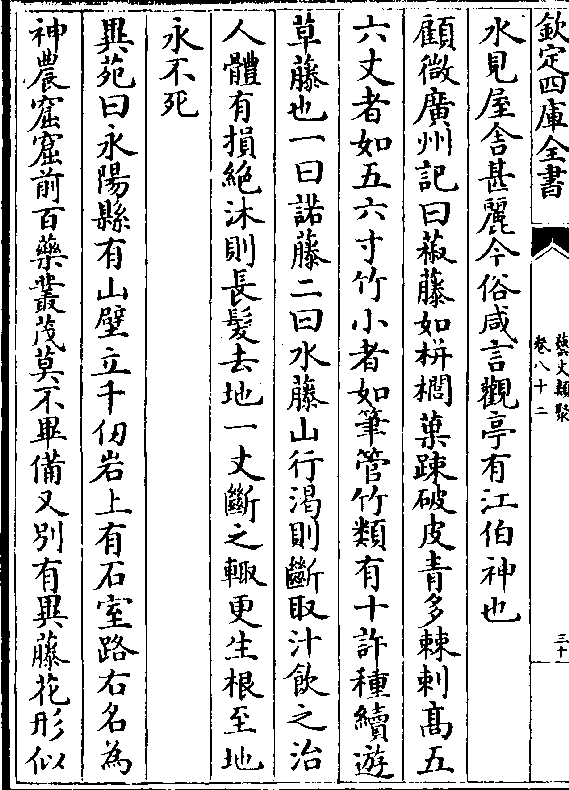 欽定四庫全書
藝文類聚
卷八十二
三十
水見屋舍甚麗今俗咸言觀亭有江伯神也
顧微廣州記曰䓤藤如栟櫚葉踈破皮青多棘刺髙五
六丈者如五六寸竹小者如筆管竹類有十許種續遊
草藤也一曰諾藤二曰水藤山行渴則斷取汁飲之治
人體有損絶沐則長髮去地一丈斷之輙更生根至地
永不死
異苑曰永陽縣有山壁立千仞岩上有石室路右名為
神農窟窟前百藥叢茂莫不畢備又別有異藤花形似